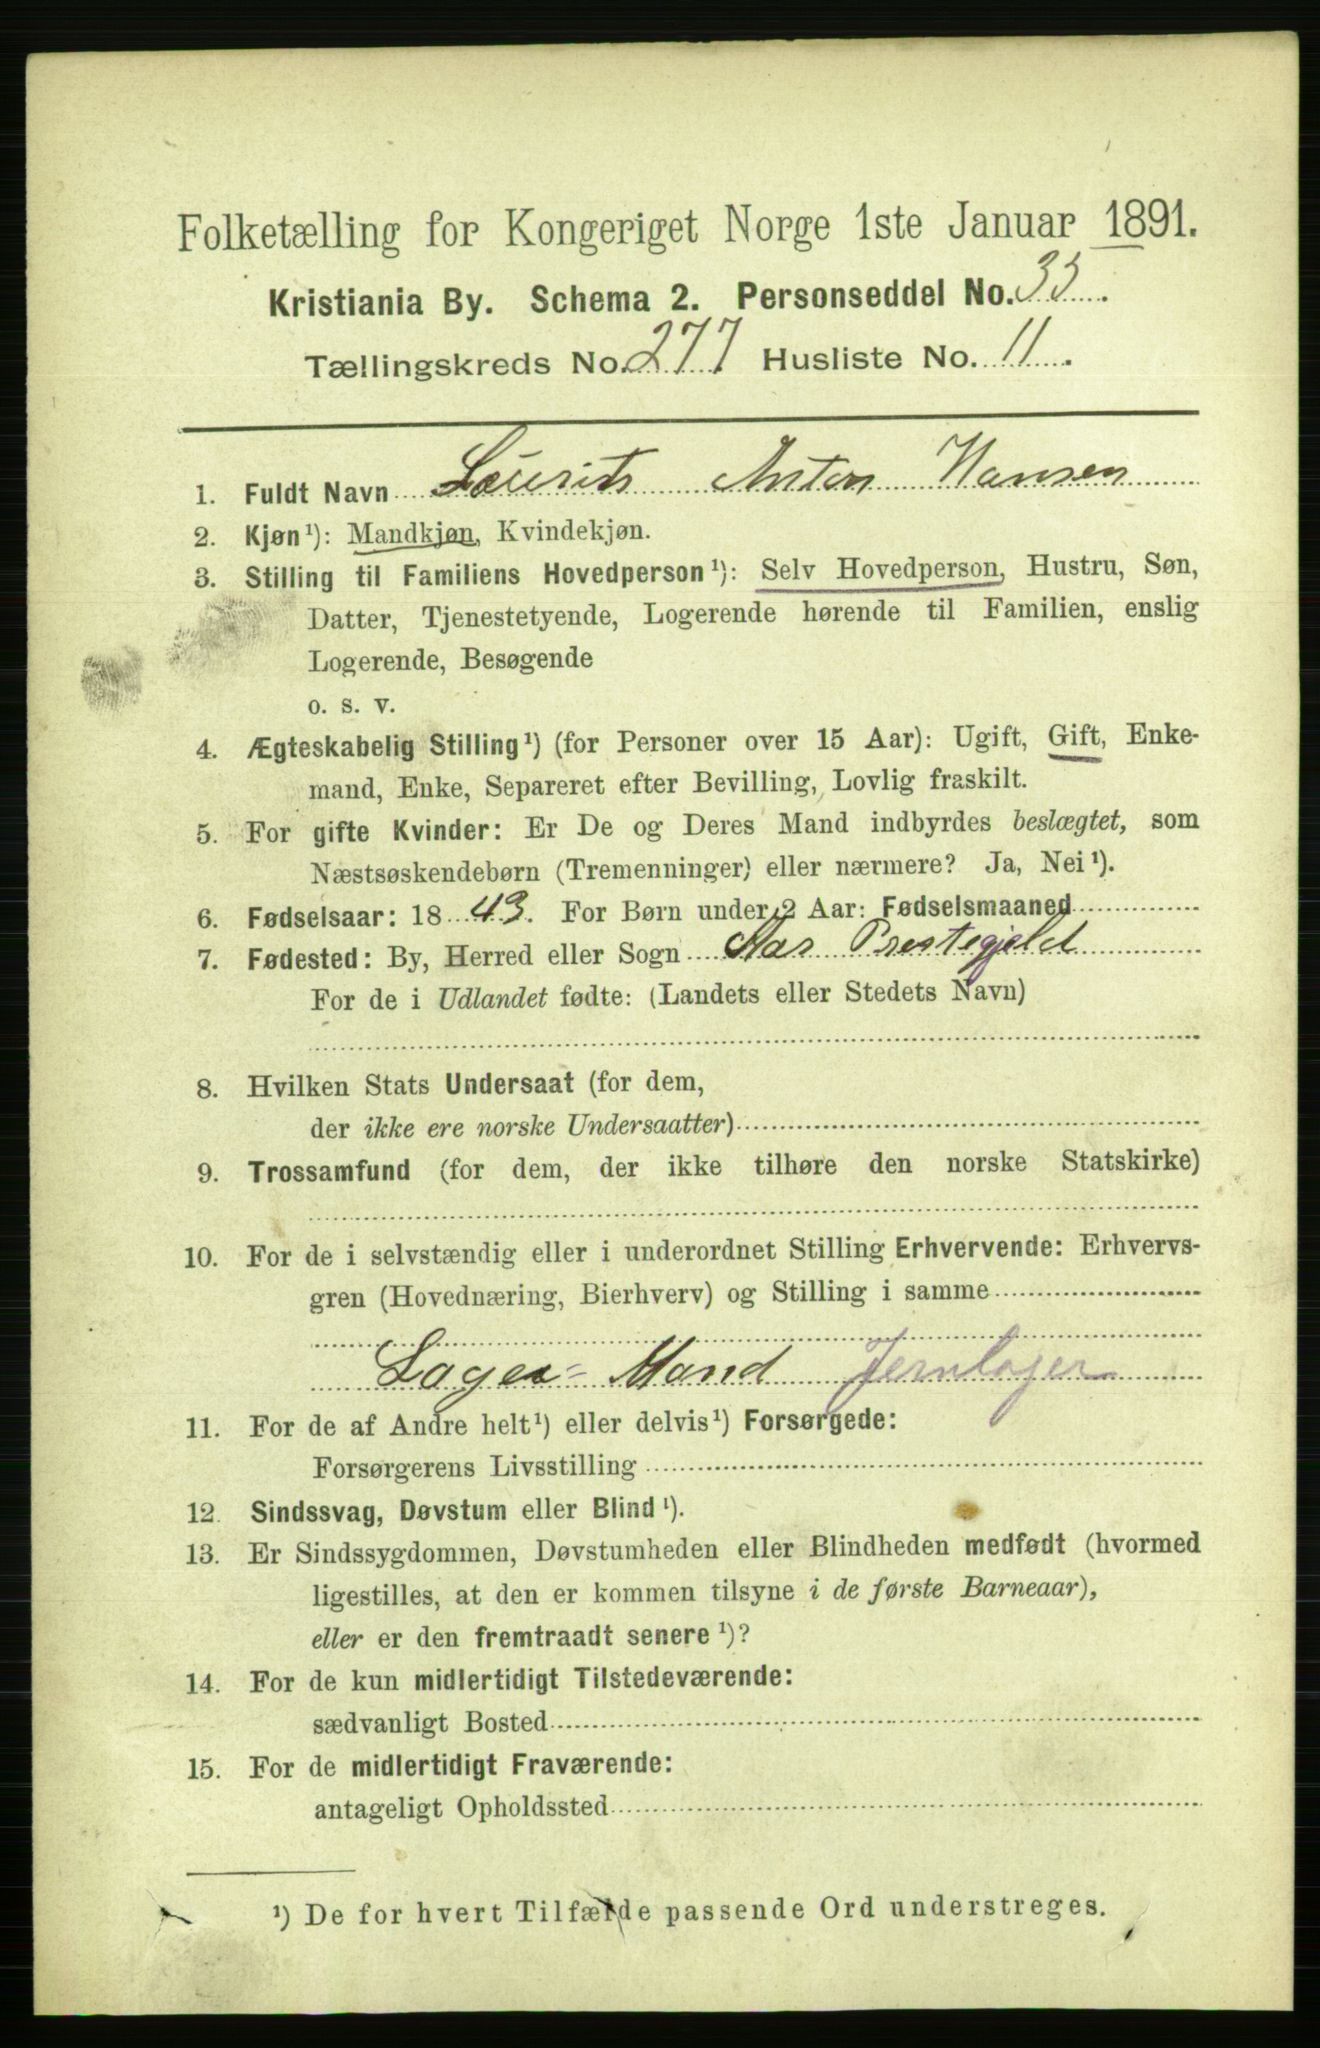 Folketælling for Kongeriget Norge 1ste Januar 1891.
Kristiania By. Schema 2. Personseddel No. 35.
Tællingskreds No. 277. Husliste No. 11.
1. Fuldt Navn Laurits Anton Hansen
2. Kjøn¹): Mandkjøn, Kvindekjøn.
3. Stilling til Familiens Hovedperson¹): Selv Hovedperson, Hustru, Søn,
Datter, Tjenestetyende, Logerende hørende til Familien, enslig
Logerende, Besøgende
o. s. v.
4. Ægteskabelig Stilling¹) (for Personer over 15 Aar): Ugift, Gift, Enke-
mand, Enke, Separeret efter Bevilling, Lovlig fraskilt.
5. For gifte Kvinder: Er De og Deres Mand indbyrdes beslægtet, som
Næstsøskendebørn (Tremenninger) eller nærmere? Ja, Nei¹).
6. Fødselsaar: 1843. For Børn under 2 Aar: Fødselsmaaned
7. Fødested: By, Herred eller Sogn Aas Prestegjeld
For de i Udlandet fødte: (Landets eller Stedets Navn)
8. Hvilken Stats Undersaat (for dem,
der ikke ere norske Undersaatter)
9. Trossamfund (for dem, der ikke tilhøre den norske Statskirke)
10. For de i selvstændig eller i underordnet Stilling Erhvervende: Erhvervs-
gren (Hovednæring, Bierhverv) og Stilling i samme
Lager=Mand Jernlager
11. For de af Andre helt¹) eller delvis¹) Forsørgede:
Forsørgerens Livsstilling
12. Sindssvag, Døvstum eller Blind¹).
13. Er Sindssygdommen, Døvstumheden eller Blindheden medfødt (hvormed
ligestilles, at den er kommen tilsyne i de første Barneaar),
eller er den fremtraadt senere¹)?
14. For de kun midlertidigt Tilstedeværende:
sædvanligt Bosted
15. For de midlertidigt Fraværende:
antageligt Opholdssted
¹) De for hvert Tilfælde passende Ord understreges.